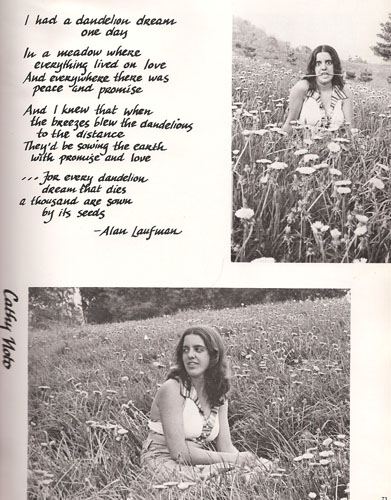 I had a dandelion dream
one day
In a meadow where
everything lived on love
And everywhere there was
peace and promise
And I knew that when
the breezes blew the dandelions
to the distance
They'd be sowing the earth
with promise and love
... For every dandelion
dream that dies
a thousand are sown
by its seeds
—Alan Laufman
Cathy Noto